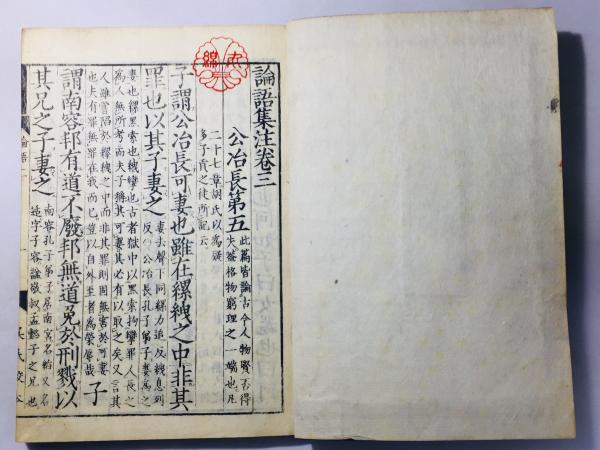 論語集注卷三
公冶長第五
此篇皆論古今人物賢否得
失蓋格物窮理之一端也凡
二十七章胡氏以為疑
多子貢之徒所記云
子謂公冶長可妻也雖在縲絏之中非其
罪也以其子妻之
妻去聲下同縲力追反絏息列
反○公冶長孔子弟子妻為之
妻也縲黑索也絏攣也古者獄中以黑索拘攣罪人長之
為人無所考而夫子稱其可妻其必有以取之矣又言其
人雖嘗陷於縲絏之中而非其罪則固無害於可妻
也夫有罪無罪在我而已豈以自外至者為榮辱哉
子
謂南容邦有道不廢邦無道免於刑戮以
其兄之子妻之
南容孔子弟子居南宮名縚又名
适字子容諡敬叔孟懿子之兄也
論語
吳氏校本